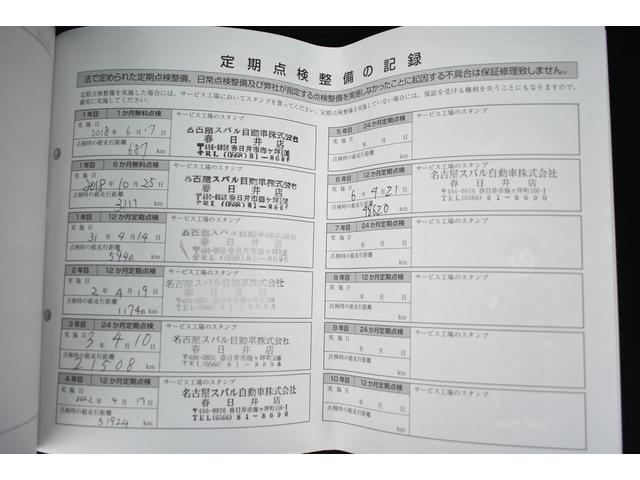 定期点検整備の記録
法で定められた定期点検整備、日常点検整備及び弊社が指定する点検整備を実施しなかったことに起因する不具合は保証修理致しません。
定期点検整備を実施した場合には、サービス工場においてスタンプを貰ってください。定期点検整備を実施していない場合には、保証を受ける権利を失うこともなりますので、
確実に実施してください。
1年目 1か月無料点検 サービス工場のスタンプ
実施日
2018年6月17日
点検時の総走行距離
687 km
名古屋スバル自動車株式会社
春日井店
〒486-0856 春日井市梅ヶ坪町106
TEL(0568)81-8690
1年目 6か月無料点検 サービス工場のスタンプ
実施日
2018年10月25日
点検時の総走行距離
3111 km
名古屋スバル自動車株式会社
春日井店
〒486-0856 春日井市梅ヶ坪町106
TEL(0568)81-8690
1年目 12か月定期点検 サービス工場のスタンプ
実施日
31年4月14日
点検時の総走行距離
5940 km
名古屋スバル自動車株式会社
春日井店
2年目 12か月定期点検 サービス工場のスタンプ
実施日
2年4月19日
点検時の総走行距離
11740 km
名古屋スバル自動車株式会社
春日井店
3年目 24か月定期点検 サービス工場のスタンプ
実施日
3年4月10日
点検時の総走行距離
21508 km
名古屋スバル自動車株式会社
春日井店
〒486-0856 春日井市梅ヶ坪町106
4年目 12か月定期点検 サービス工場のスタンプ
実施日
2022年4月17日
点検時の総走行距離
31924 km
名古屋スバル自動車株式会社
春日井店
〒486-0856 春日井市梅ヶ坪町106-1
TEL(0568)81-8690
5年目 24か月定期点検 サービス工場のスタンプ
実施日
年 月 日
点検時の総走行距離
km
6年目 12か月定期点検 サービス工場のスタンプ
実施日
6年4月21日
点検時の総走行距離
48620 km
名古屋スバル自動車株式会社
春日井店
〒486-0856 春日井市梅ヶ坪町106-1
TEL(0568)81-8690
7年目 24か月定期点検 サービス工場のスタンプ
実施日
年 月 日
点検時の総走行距離
km
8年目 12か月定期点検 サービス工場のスタンプ
実施日
年 月 日
点検時の総走行距離
km
9年目 24か月定期点検 サービス工場のスタンプ
実施日
年 月 日
点検時の総走行距離
km
10年目 12か月定期点検 サービス工場のスタンプ
実施日
年 月 日
点検時の総走行距離
km